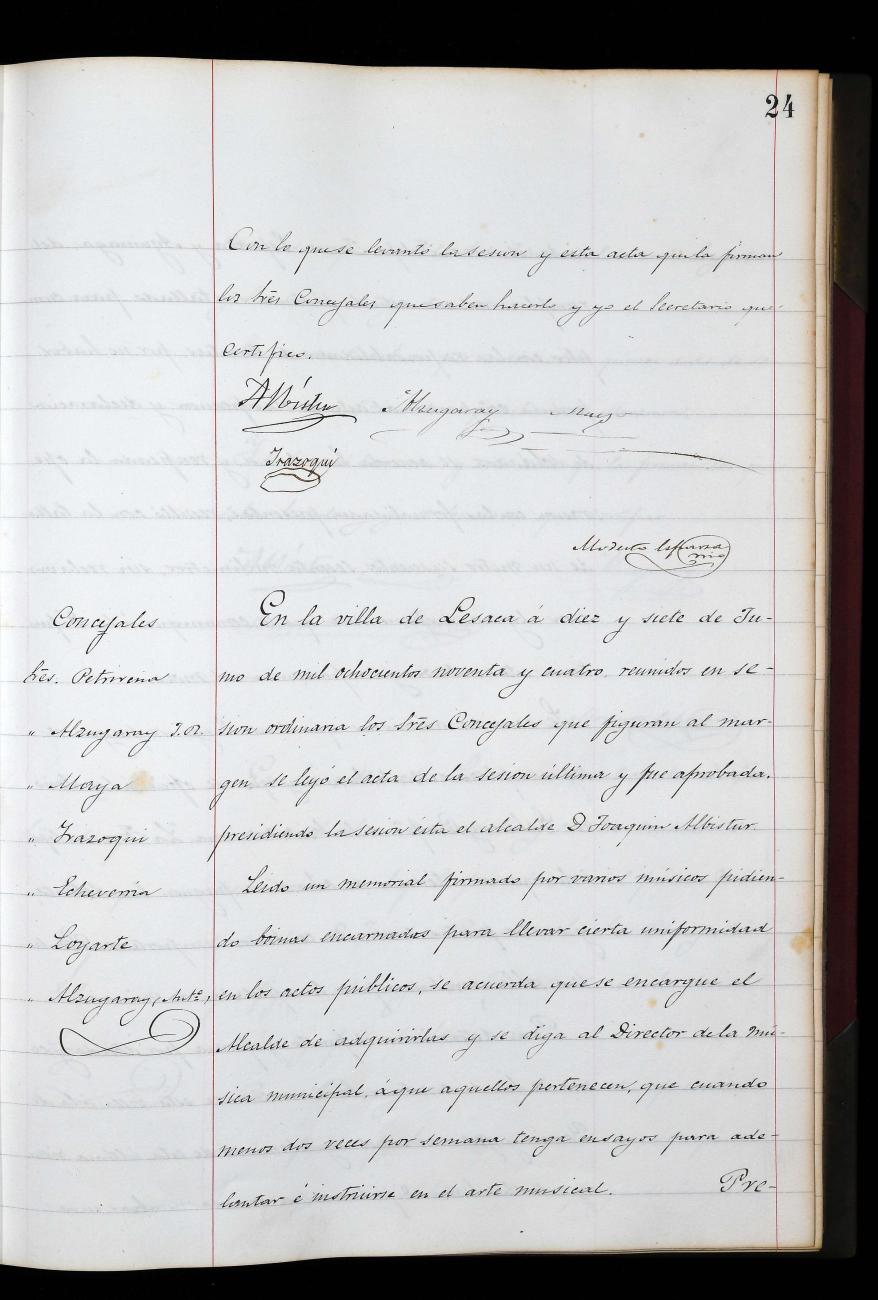 24
Con lo que se levantó la sesion y esta acta que la firman
los Srẽs Concejales que saben hacerlo y yo el Secretario que
certifico.
Albistur Alzugaray Maya
Irazoqui
Modesto Esparza
Srio
Concejales
Srẽs. Petrirena
" Alzugaray J. M.
" Maya
" Irazoqui
" Echeverria
" Loyarte
" Alzugaray,
En la villa de Lesaca á diez y siete de Ju-
nio de mil ochocientos noventa y cuatro, reunidos en se-
sion ordinaria los Srẽs Concejales que figuran al mar-
gen se leyó el acta de la sesion última y fue aprobada,
presidiendo la sesion ésta el alcalde D Joaquin Albistur.
Leido un memorial firmado por varios músicos pidien-
do boinas encarnadas para llevar cierta uniformidad
en los actos públicos, se acuerda que se encargue el
Alcalde de adquirirlas y se diga al Director de la mú-
sica municipal, á que aquellos pertenecen, que cuando
menos dos veces por semana tenga ensayos para ade-
lantar é instruirse en el arte musical. Pre-